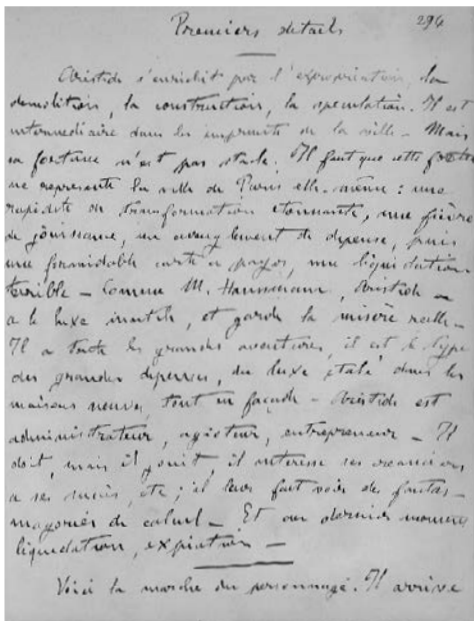 Premiers détails 294
Aristide s'enrichit par l'expropriation, la
démolition, la construction, la spéculation. Il est
intermédiaire dans les emprunts de la ville – Mais
sa fortune n'est pas stable. Il faut que cette fortune
me représente la ville de Paris elle-même : une
rapidité de transformation étonnante, une fièvre
de jouissance, un aveuglement de dépense, puis
une formidable carte à payer, une liquidation
terrible – Comme M. Haussmann, Aristide
a le luxe inutile, et garde la misère réelle –
Il a toutes les grandes aventures, il est le type
des grandes dépenses, du luxe étalé dans les
maisons neuves, tout en façade – Aristide est
administrateur, agioteur, entrepreneur – Il
doit, mais il jouit, il intéresse ses créanciers
à ses succès, etc ; il leur fait voir des fantas-
magories de calcul – Et au dernier moment
liquidation, expiation –
Voici la marche du personnage. Il arrive